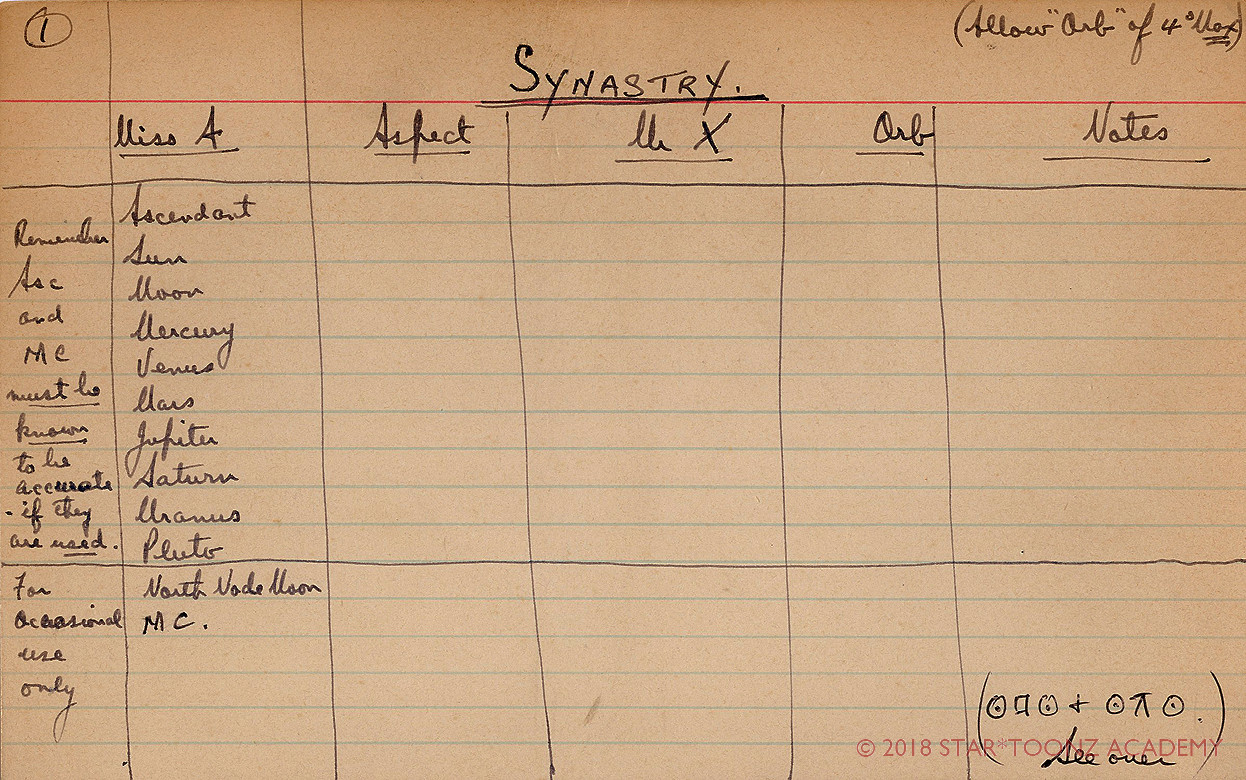 1
(Allow "Orb" of 4° Max)
SYNASTRY.
Miss A Aspect Mr X Orb Notes
Remember
Asc
and
MC
must be
known
to be
accurate
- if they
are used.
Ascendant
Sun
Moon
Mercury
Venus
Mars
Jupiter
Saturn
Uranus
Pluto
For
occasional
use
only
North Node Moon
MC.
(☉□☉ + ☉⚻☉.)
See over
© 2018 STAR*TOONZ ACADEMY